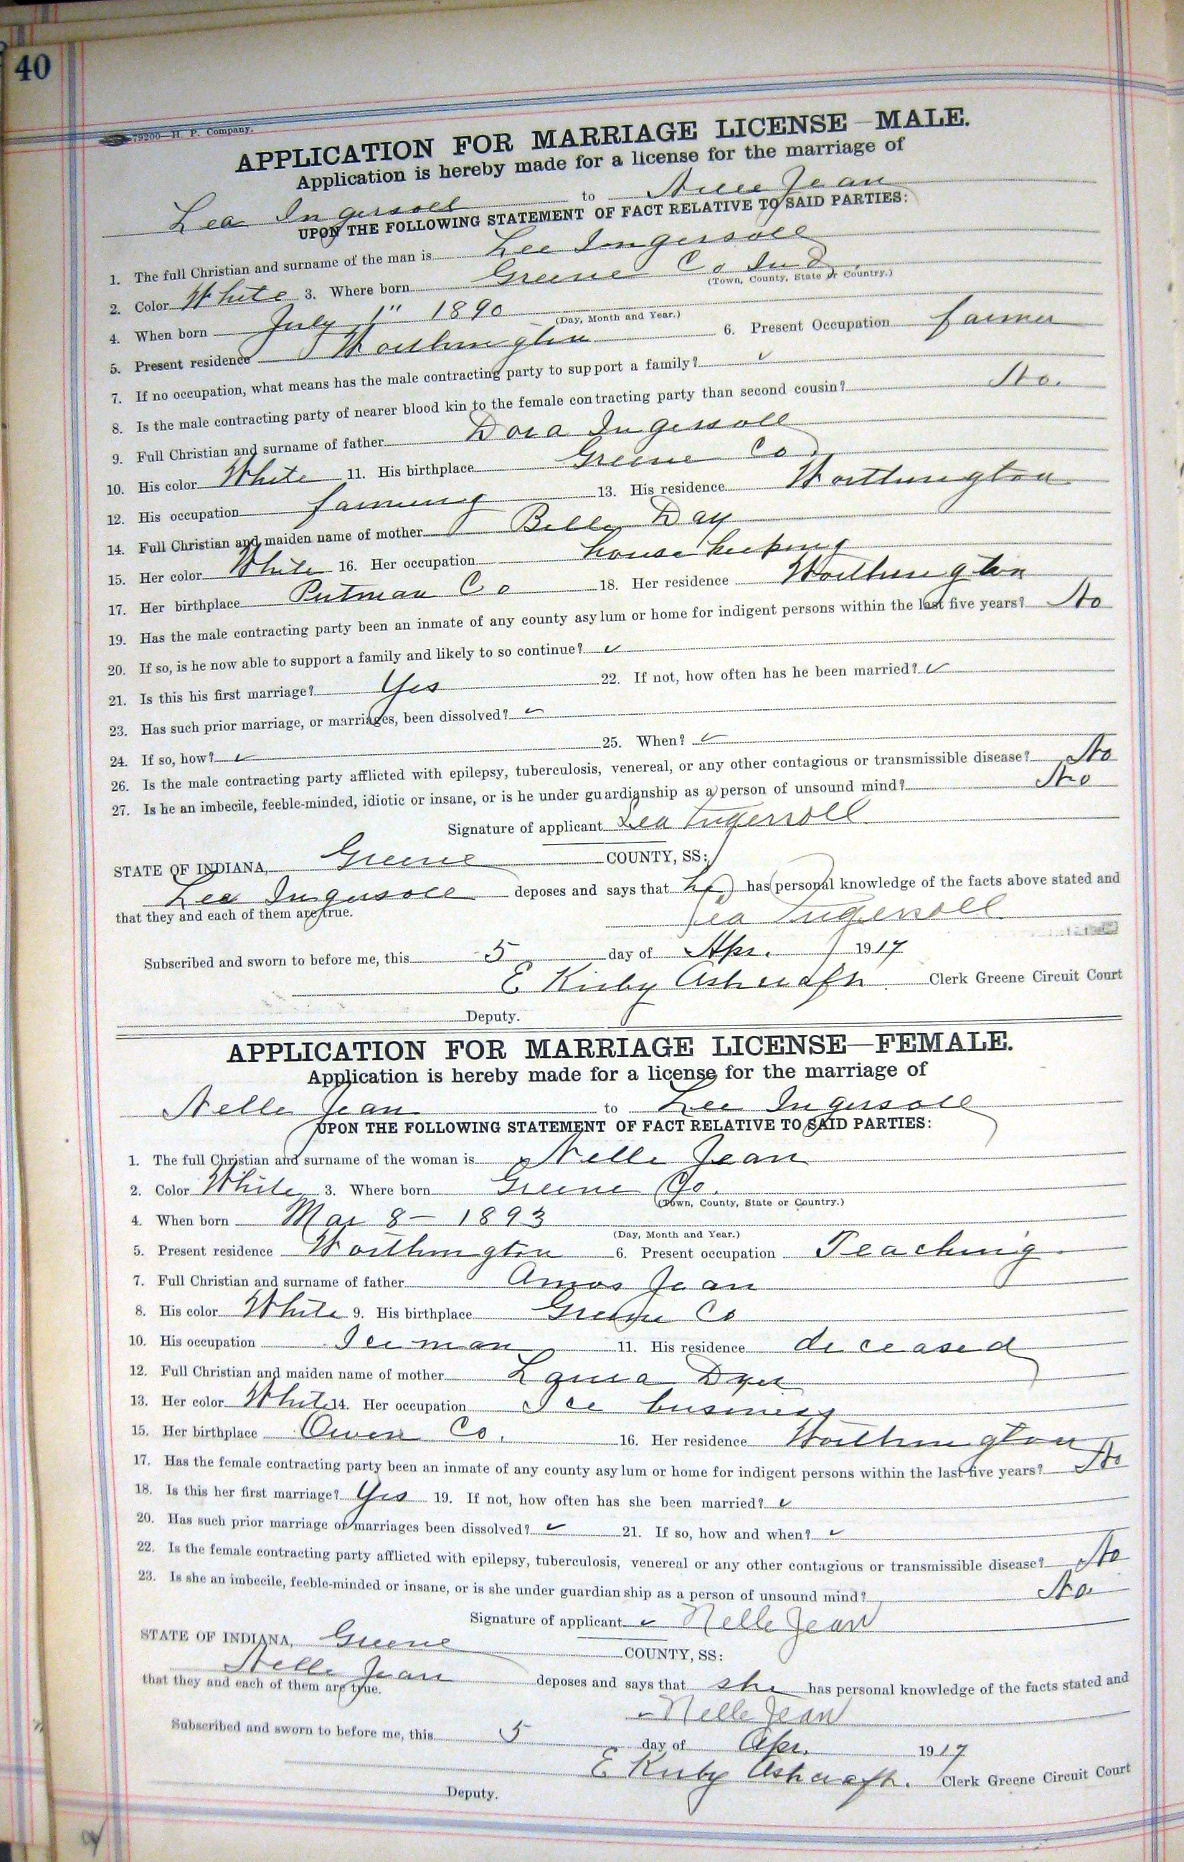 40
79200—H. P. Company.
APPLICATION FOR MARRIAGE LICENSE—MALE.
Application is hereby made for a license for the marriage of
Lea Ingersoll to Nelle Jean
UPON THE FOLLOWING STATEMENT OF FACT RELATIVE TO SAID PARTIES:
1. The full Christian and surname of the man is Lee Ingersoll
2. Color White 3. Where born Greene Co Ind.
(Town, County, State or Country.)
4. When born July 1" 1890
(Day, Month and Year.)
5. Present residence Worthington 6. Present Occupation farmer
7. If no occupation, what means has the male contracting party to support a family? ✓
8. Is the male contracting party of nearer blood kin to the female contracting party than second cousin? No.
9. Full Christian and surname of father Dora Ingersoll
10. His color White 11. His birthplace Greene Co
12. His occupation farming 13. His residence Worthington
14. Full Christian and maiden name of mother Belle Day
15. Her color White 16. Her occupation house keeping
17. Her birthplace Putman Co 18. Her residence Worthington
19. Has the male contracting party been an inmate of any county asylum or home for indigent persons within the last five years? No
20. If so, is he now able to support a family and likely to so continue? ✓
21. Is this his first marriage? Yes 22. If not, how often has he been married? ✓
23. Has such prior marriage, or marriages, been dissolved? ✓
24. If so, how? ✓ 25. When? ✓
26. Is the male contracting party afflicted with epilepsy, tuberculosis, venereal, or any other contagious or transmissible disease? No
27. Is he an imbecile, feeble-minded, idiotic or insane, or is he under guardianship as a person of unsound mind? No
Signature of applicant Lea Ingersoll
STATE OF INDIANA, Greene COUNTY, SS:
Lea Ingersoll deposes and says that he has personal knowledge of the facts above stated and
that they and each of them are true.
Lea Ingersoll
Subscribed and sworn to before me, this 5 day of Apr. 1917
E Kirby Ashcraft. Clerk Greene Circuit Court
Deputy.
APPLICATION FOR MARRIAGE LICENSE—FEMALE.
Application is hereby made for a license for the marriage of
Nelle Jean to Lee Ingersoll
UPON THE FOLLOWING STATEMENT OF FACT RELATIVE TO SAID PARTIES:
1. The full Christian and surname of the woman is Nelle Jean
2. Color White 3. Where born Greene Co.
(Town, County, State or Country.)
4. When born Mar 8 – 1893
(Day, Month and Year.)
5. Present residence Worthington 6. Present occupation Teaching
7. Full Christian and surname of father Amos Jean
8. His color White 9. His birthplace Greene Co
10. His occupation Ice man 11. His residence deceased
12. Full Christian and maiden name of mother Laura Dyer
13. Her color White 14. Her occupation Ice business
15. Her birthplace Owen Co. 16. Her residence Worthington
17. Has the female contracting party been an inmate of any county asylum or home for indigent persons within the last five years? No
18. Is this her first marriage? Yes 19. If not, how often has she been married? ✓
20. Has such prior marriage or marriages been dissolved? ✓ 21. If so, how and when? ✓
22. Is the female contracting party afflicted with epilepsy, tuberculosis, venereal or any other contagious or transmissible disease? No
23. Is she an imbecile, feeble-minded or insane, or is she under guardianship as a person of unsound mind? No
Signature of applicant ✓ Nelle Jean
STATE OF INDIANA, Greene COUNTY, SS:
Nelle Jean deposes and says that she has personal knowledge of the facts stated and
that they and each of them are true.
Nelle Jean
Subscribed and sworn to before me, this 5 day of Apr. 1917
E Kirby Ashcraft. Clerk Greene Circuit Court
Deputy.